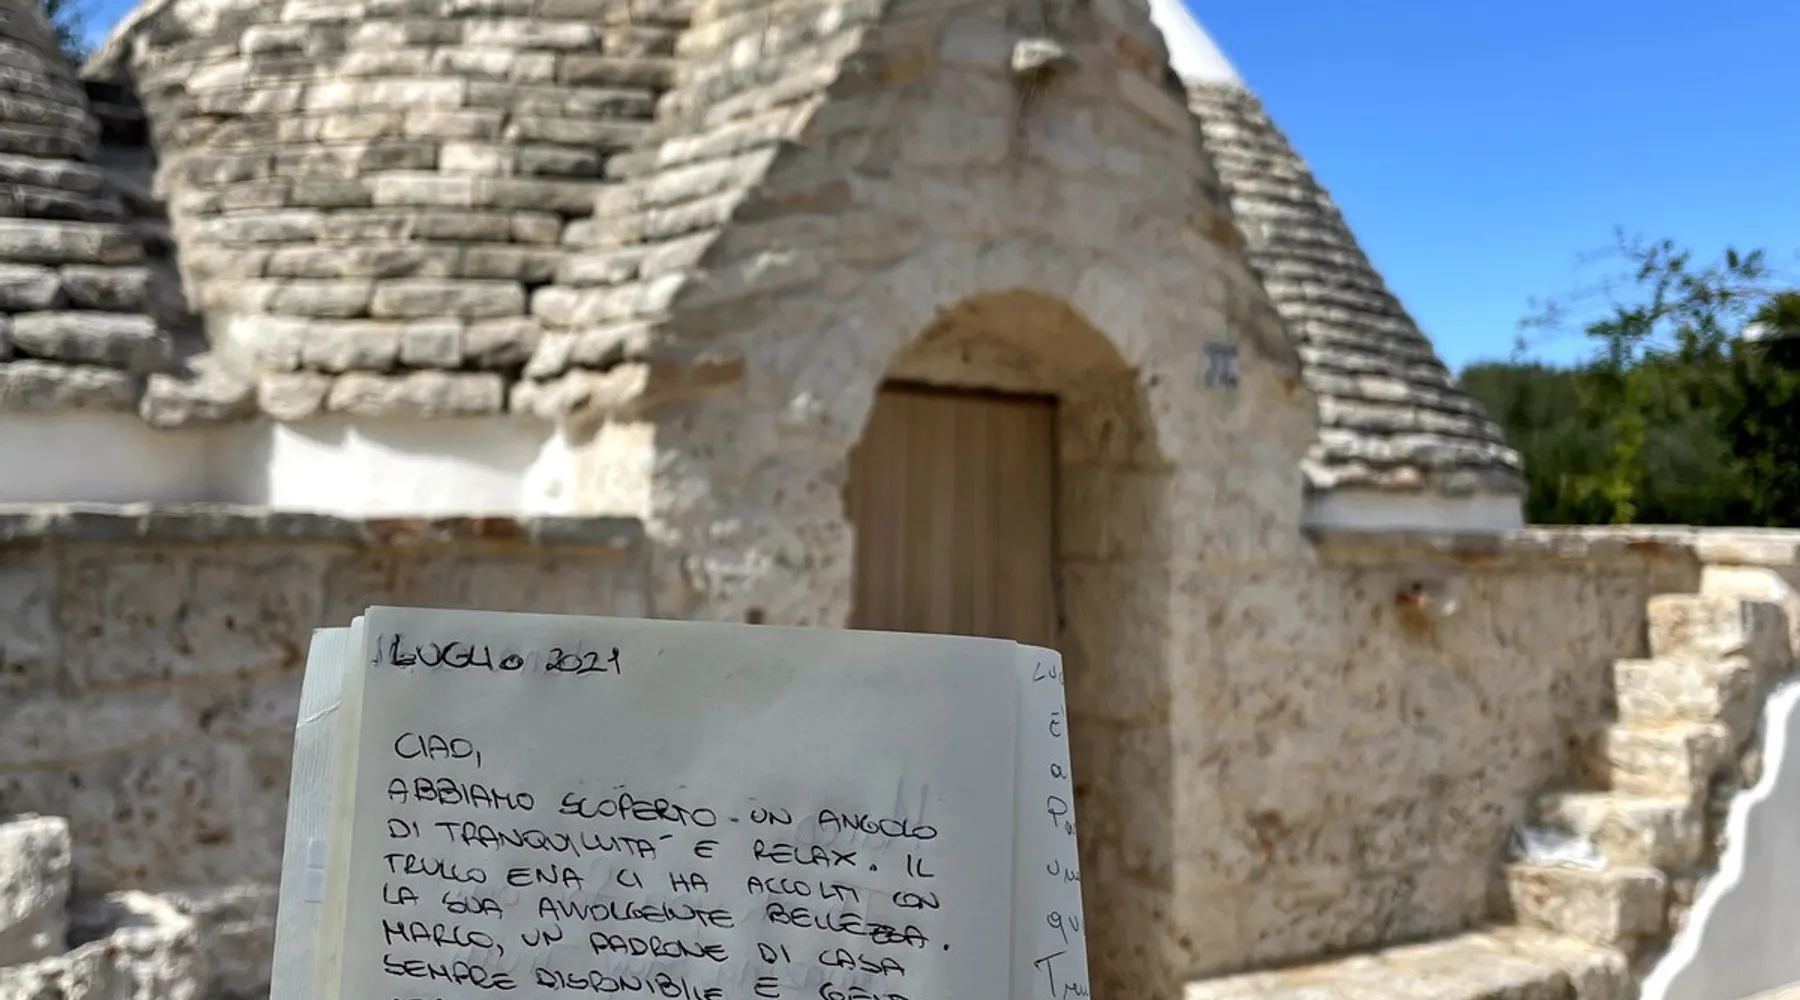 LUGLIO 2021
CIAO,
ABBIAMO SCOPERTO UN ANGOLO
DI TRANQUILLITÀ E RELAX. IL
TRULLO ENA CI HA ACCOLTI CON
LA SUA AVVOLGENTE BELLEZZA.
MARCO, UN PADRONE DI CASA
SEMPRE DISPONIBILE E